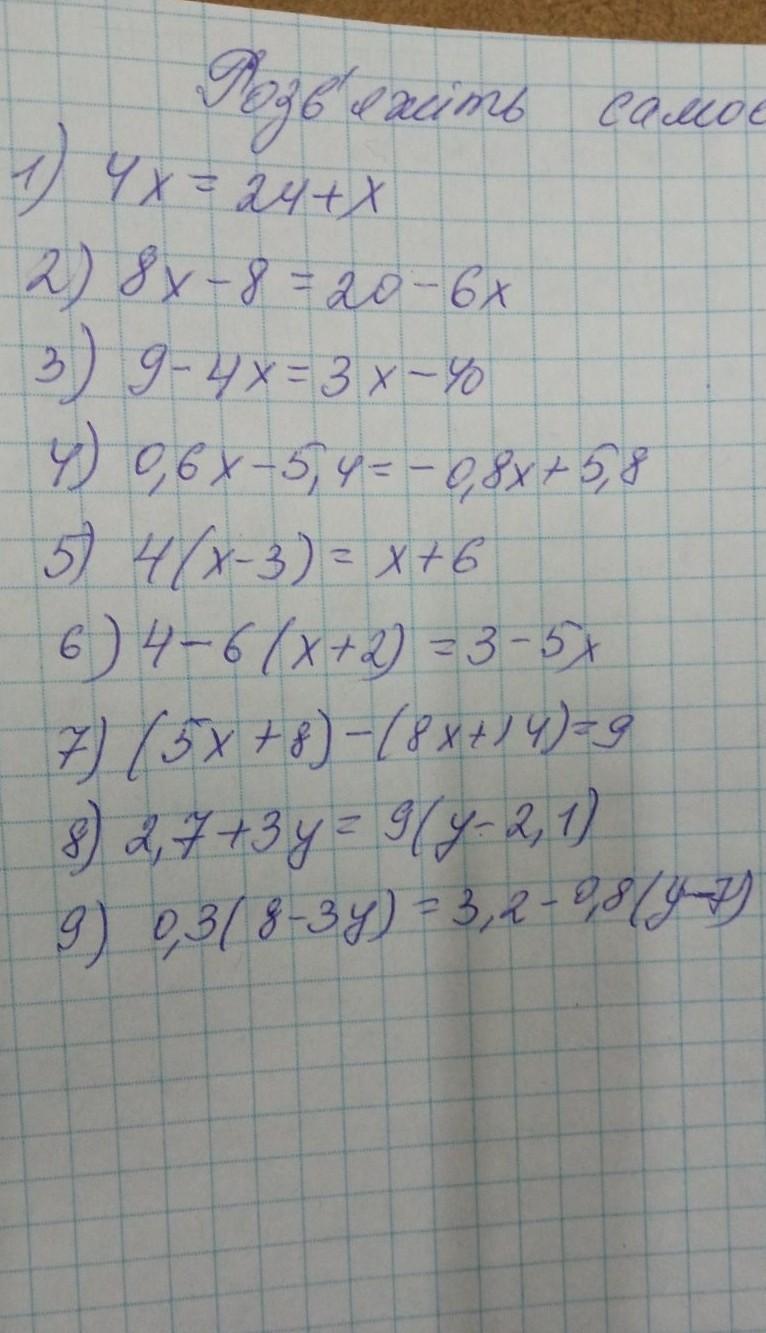 Розв'яжіть
1) 4x = 24 + x
2) 8x - 8 = 20 - 6x
3) 9 - 4x = 3x - 40
4) 0,6x - 5,4 = - 0,8x + 5,8
5) 4(x - 3) = x + 6
6) 4 - 6(x + 2) = 3 - 5x
7) (5x + 8) - (8x + 14) = 9
8) 2,7 + 3y = 9(y - 2,1)
9) 0,3(8 - 3y) = 3,2 - 0,8(y - 7)